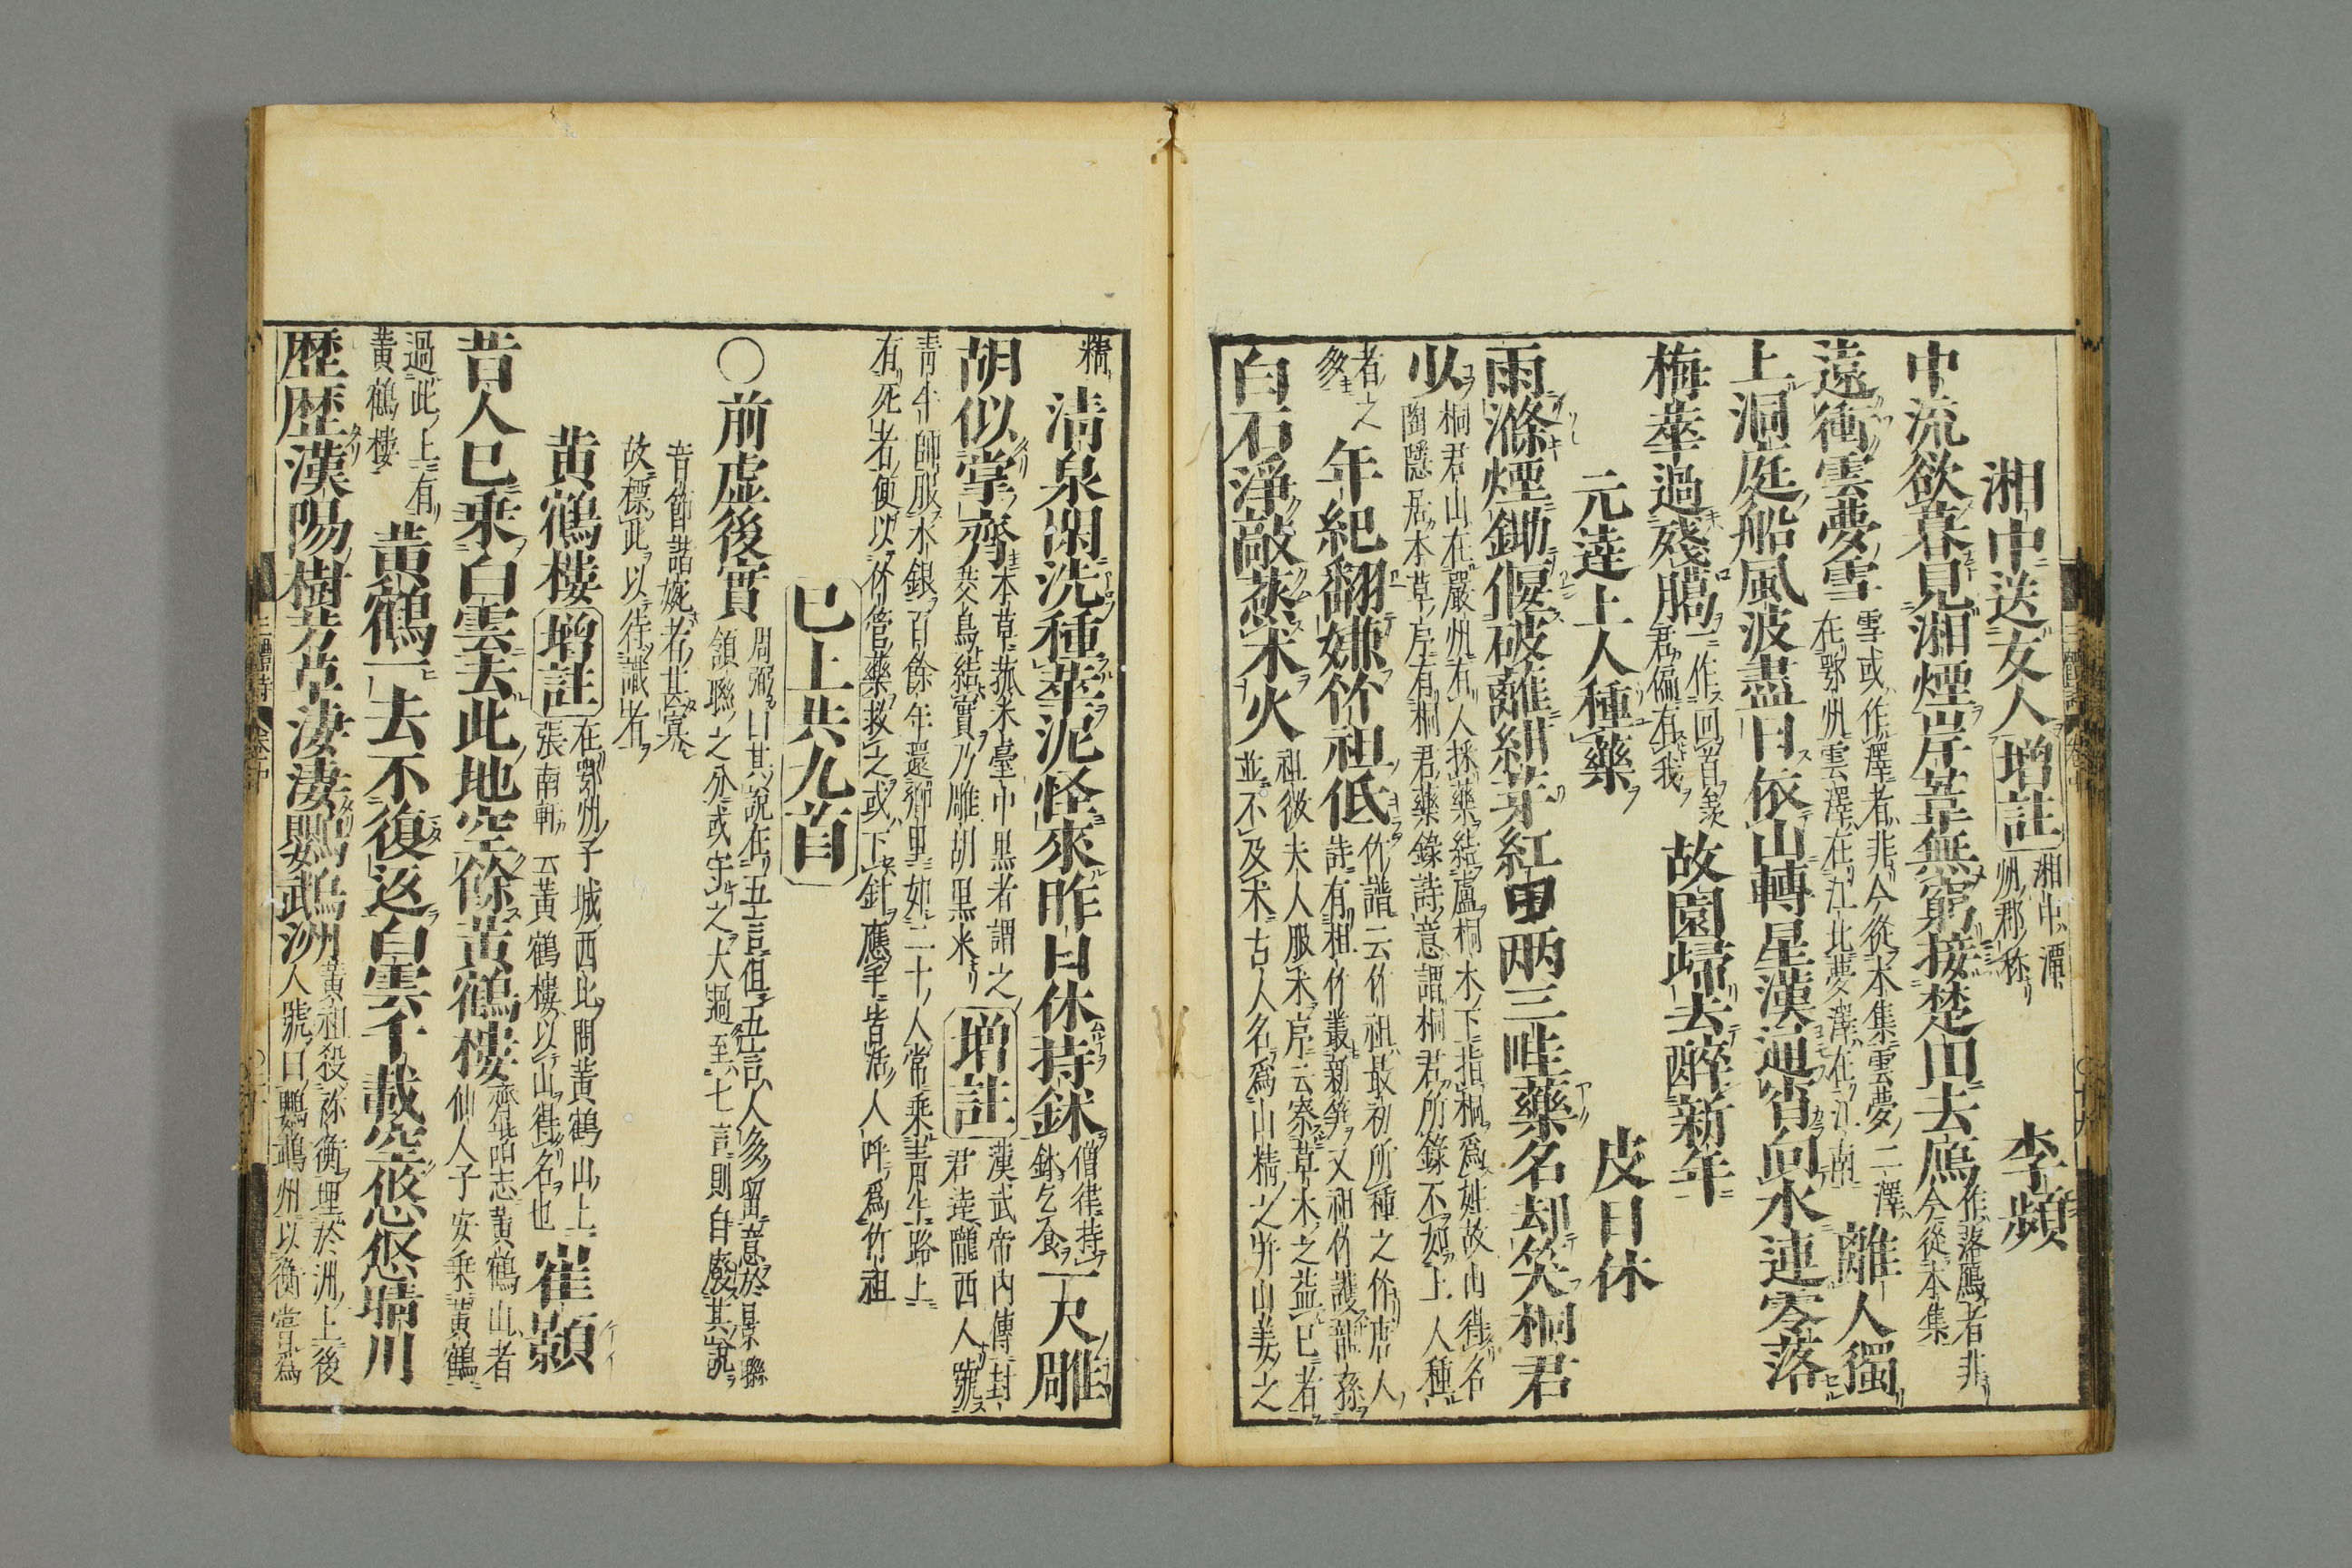 湘中送友人 增註 湘中潭州郡称 李頻
中流欲暮見湘煙岸葦無窮接楚田去鴈 作落鴈者非今從本集
遠衝雲夢雪 雪或作澤者非今從本集雲夢二澤在鄂州雲澤在江北夢澤在江南 離人獨
上洞庭船風波盡日依山轉星漢通宵向水連零落
梅華過殘臈 一作回首羨君偏有我 故園歸去醉新年
元達上人種藥 皮日休
雨滌煙鋤偃破籬紺芽紅甲兩三畦藥名却笑桐君
少 桐君山在嚴州有人採藥結廬桐木下指桐爲姓故山得名陶隱居本草序有桐君藥錄詩意謂桐君所錄不如上人種
者之多 年紀翻嫌竹祖低 竹譜云竹祖最初所種之竹唐人詩有祖竹叢新笋又祖竹護龍孫
白石淨敲蒸朮火 祖彼夫人服朮序云察草木之益已者並不及朮古人名爲山精之山姜之
精 清泉閑洗種華泥怪來昨日休持鉢 僧律持鉢乞食 一尺雕
胡似掌齊 本草菰米臺中黒者謂之茭鳥結實乃雕胡黒米 增註 漢武帝内傳封君達隴西人號
青牛師服水銀百餘年還鄉里如二十人常乘青牛路上有死者便以竹管藥救之或下針應手皆活人呼爲竹祖
已上共九首
〇前虛後實 周弼曰其說在五言但五言人多留意於景聯頷聯之分或守之太過至七言則自廢其說
音節諧婉者甚寡故標此以待識者
黃鶴樓 增註 在鄂州子城西北隅黃鶴山上張南軒云黃鶴樓以山得名也 崔顥
昔人已乘白雲去此地空餘黃鶴樓 齊諧志黃鶴山者仙人子安乘黃鶴
過此上有黃鶴樓 黃鶴一去不復返白雲千載空悠悠晴川
歷歷漢陽樹芳草淒淒鸚鵡洲 黃祖殺祢衡埋於洲上後人號曰鸚鵡州以衡嘗爲